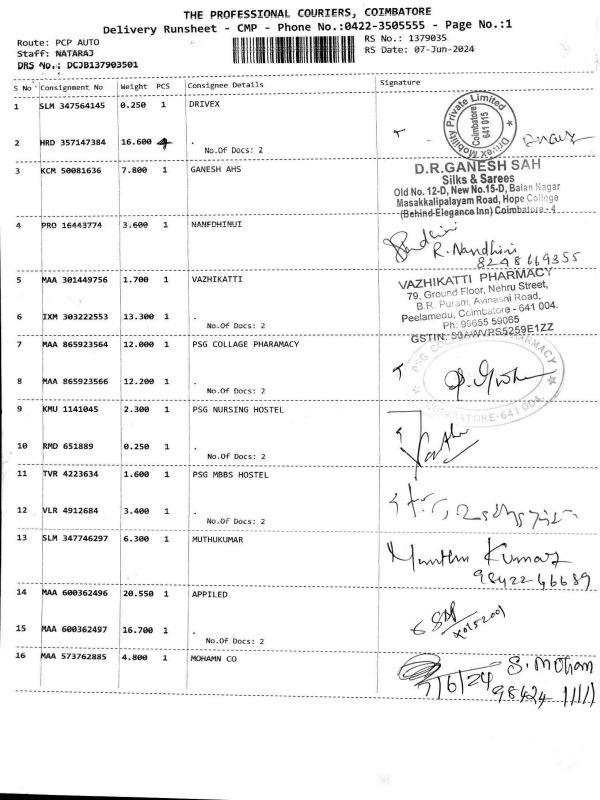 THE PROFESSIONAL COURIERS, COIMBATORE
Delivery Runsheet - CMP - Phone No.:0422-3505555 - Page No.:1
Route: PCP AUTO
Staff: NATARAJ
DRS No.: DCJB137903501
RS No.: 1379035
RS Date: 07-Jun-2024
S No Consignment No Weight PCS Consignee Details Signature
1 SLM 347564145 0.250 1 DRIVEX
2 HRD 357147384 16.600 .
No.Of Docs: 2
Drivex Mobility Private Limited
Coimbatore
641 015
3 KCM 50081636 7.800 1 GANESH AHS
D.R.GANESH SAH
Silks & Sarees
Old No. 12-D, New No.15-D, Balan Nagar
Masakkalipalayam Road, Hope College
(Behind Elegance Inn) Coimbatore - 4
4 PRO 16443774 3.600 1 NANFDHINUI
R. Nandhini
8248669355
5 MAA 301449756 1.700 1 VAZHIKATTI
6 IXM 303222553 13.300 1 .
No.Of Docs: 2
VAZHIKATTI PHARMACY
79, Ground Floor, Nehru Street,
B.R. Puram, Avinashi Road,
Peelamedu, Coimbatore - 641 004.
Ph: 99655 59065
7 MAA 865923564 12.000 1 PSG COLLAGE PHARAMACY
8 MAA 865923566 12.200 1 .
No.Of Docs: 2
PHARMACY
COIMBATORE-641 004.
9 KMU 1141045 2.300 1 PSG NURSING HOSTEL
10 RMD 651889 0.250 1 .
No.Of Docs: 2
11 TVR 4223634 1.600 1 PSG MBBS HOSTEL
12 VLR 4912684 3.400 1 .
No.Of Docs: 2
13 SLM 347746297 6.300 1 MUTHUKUMAR
Kumar
98422 46689
14 MAA 600362496 20.550 1 APPILED
15 MAA 600362497 16.700 1 .
No.Of Docs: 2
16 MAA 573762885 4.800 1 MOHAMN CO
S. Moham
7/6/24
98424 11111